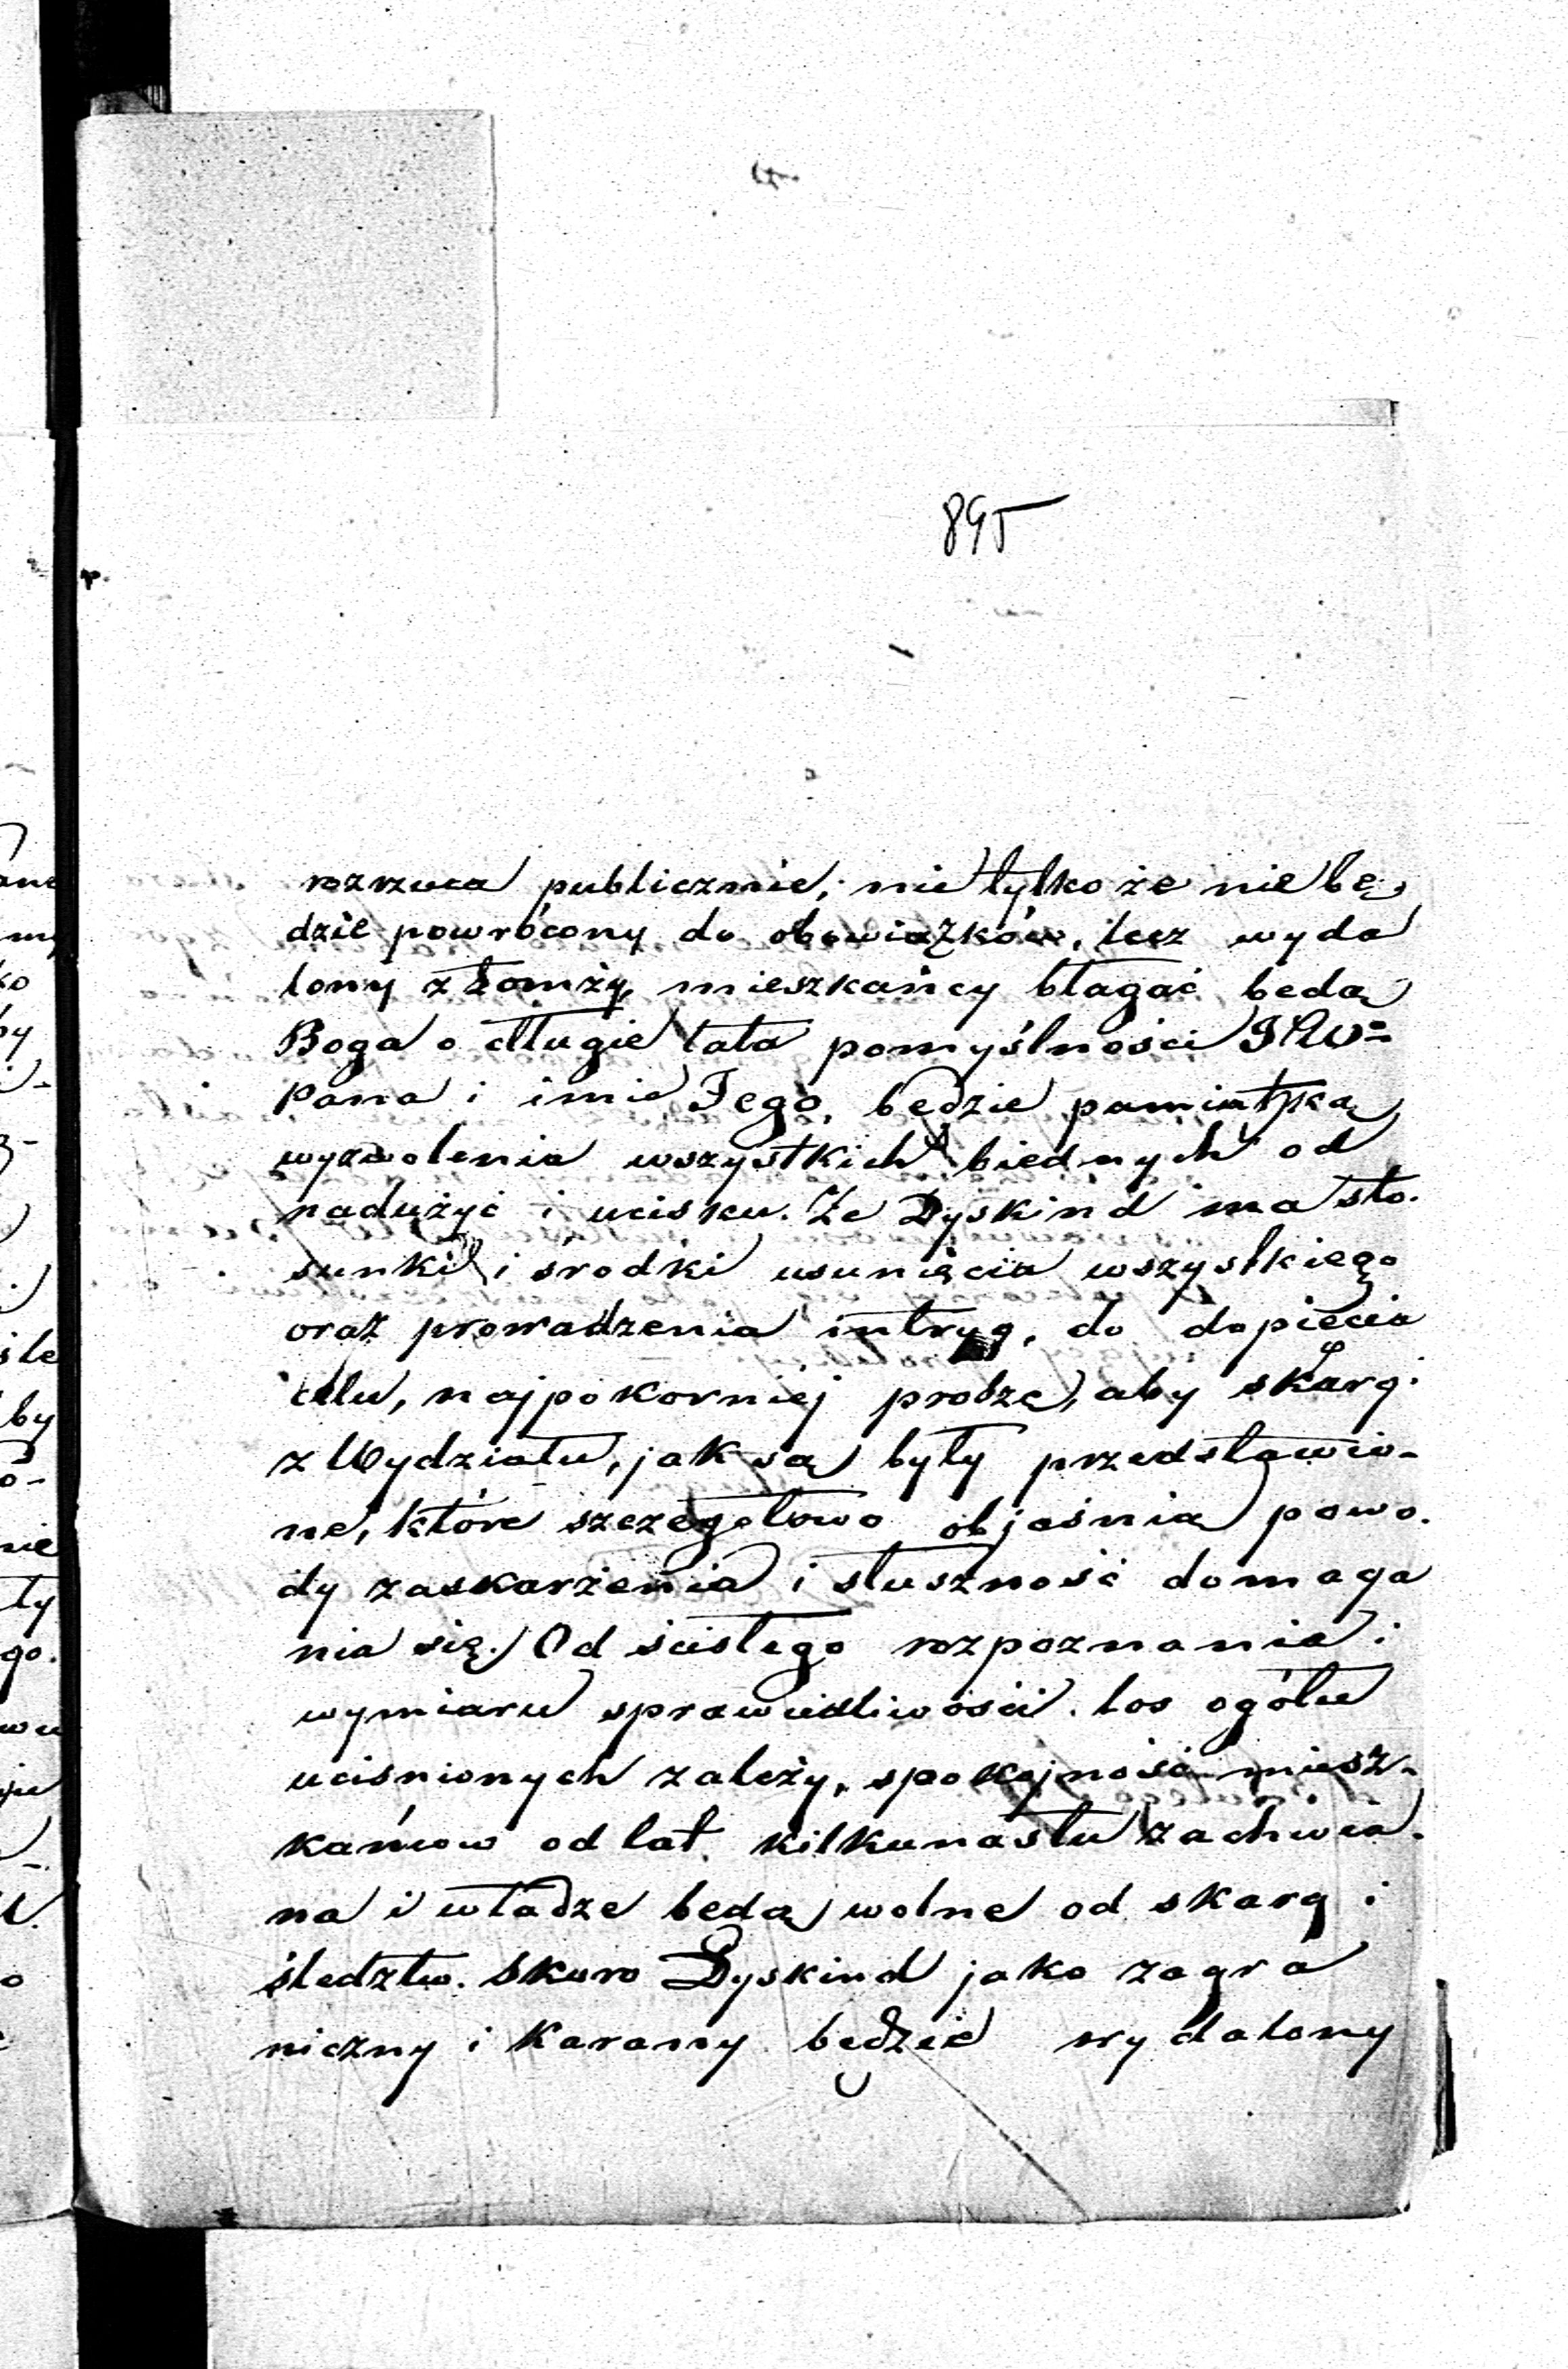 895
rozrzuca publicznie, nie tylko że nie bę-
dzie powrócony do obowiązków, lecz wyda
lony z Łomży, mieszkańcy błagać beda
Boga o długie lata pomyślności JW=
Pana i imie Jego, będzie pamiatką
wyzwolenia wszystkich biednych od
nadużyć i ucisku. Że Dyskind ma sto-
sunki i środki usunięcia wszystkiego
oraz prowadzenia intryg, do dopięcia
celu, najpokorniej prosze, aby skargi
z Wydziału, jak są były przedstawio-
ne, które szczegołowo objaśnia powo-
dy zaskarżenia i słuszność domaga
nia się. Od ścisłego rozpoznania i
wymiaru sprawiedliwości. los ogółu
uciśnionych zależy, spokojność miesz-
kańców od lat kilkunastu zachwia-
na i władze beda wolne od skarg i
śledztw. Skoro Dyskind jako zagra
niczny i karany będzie wydalony